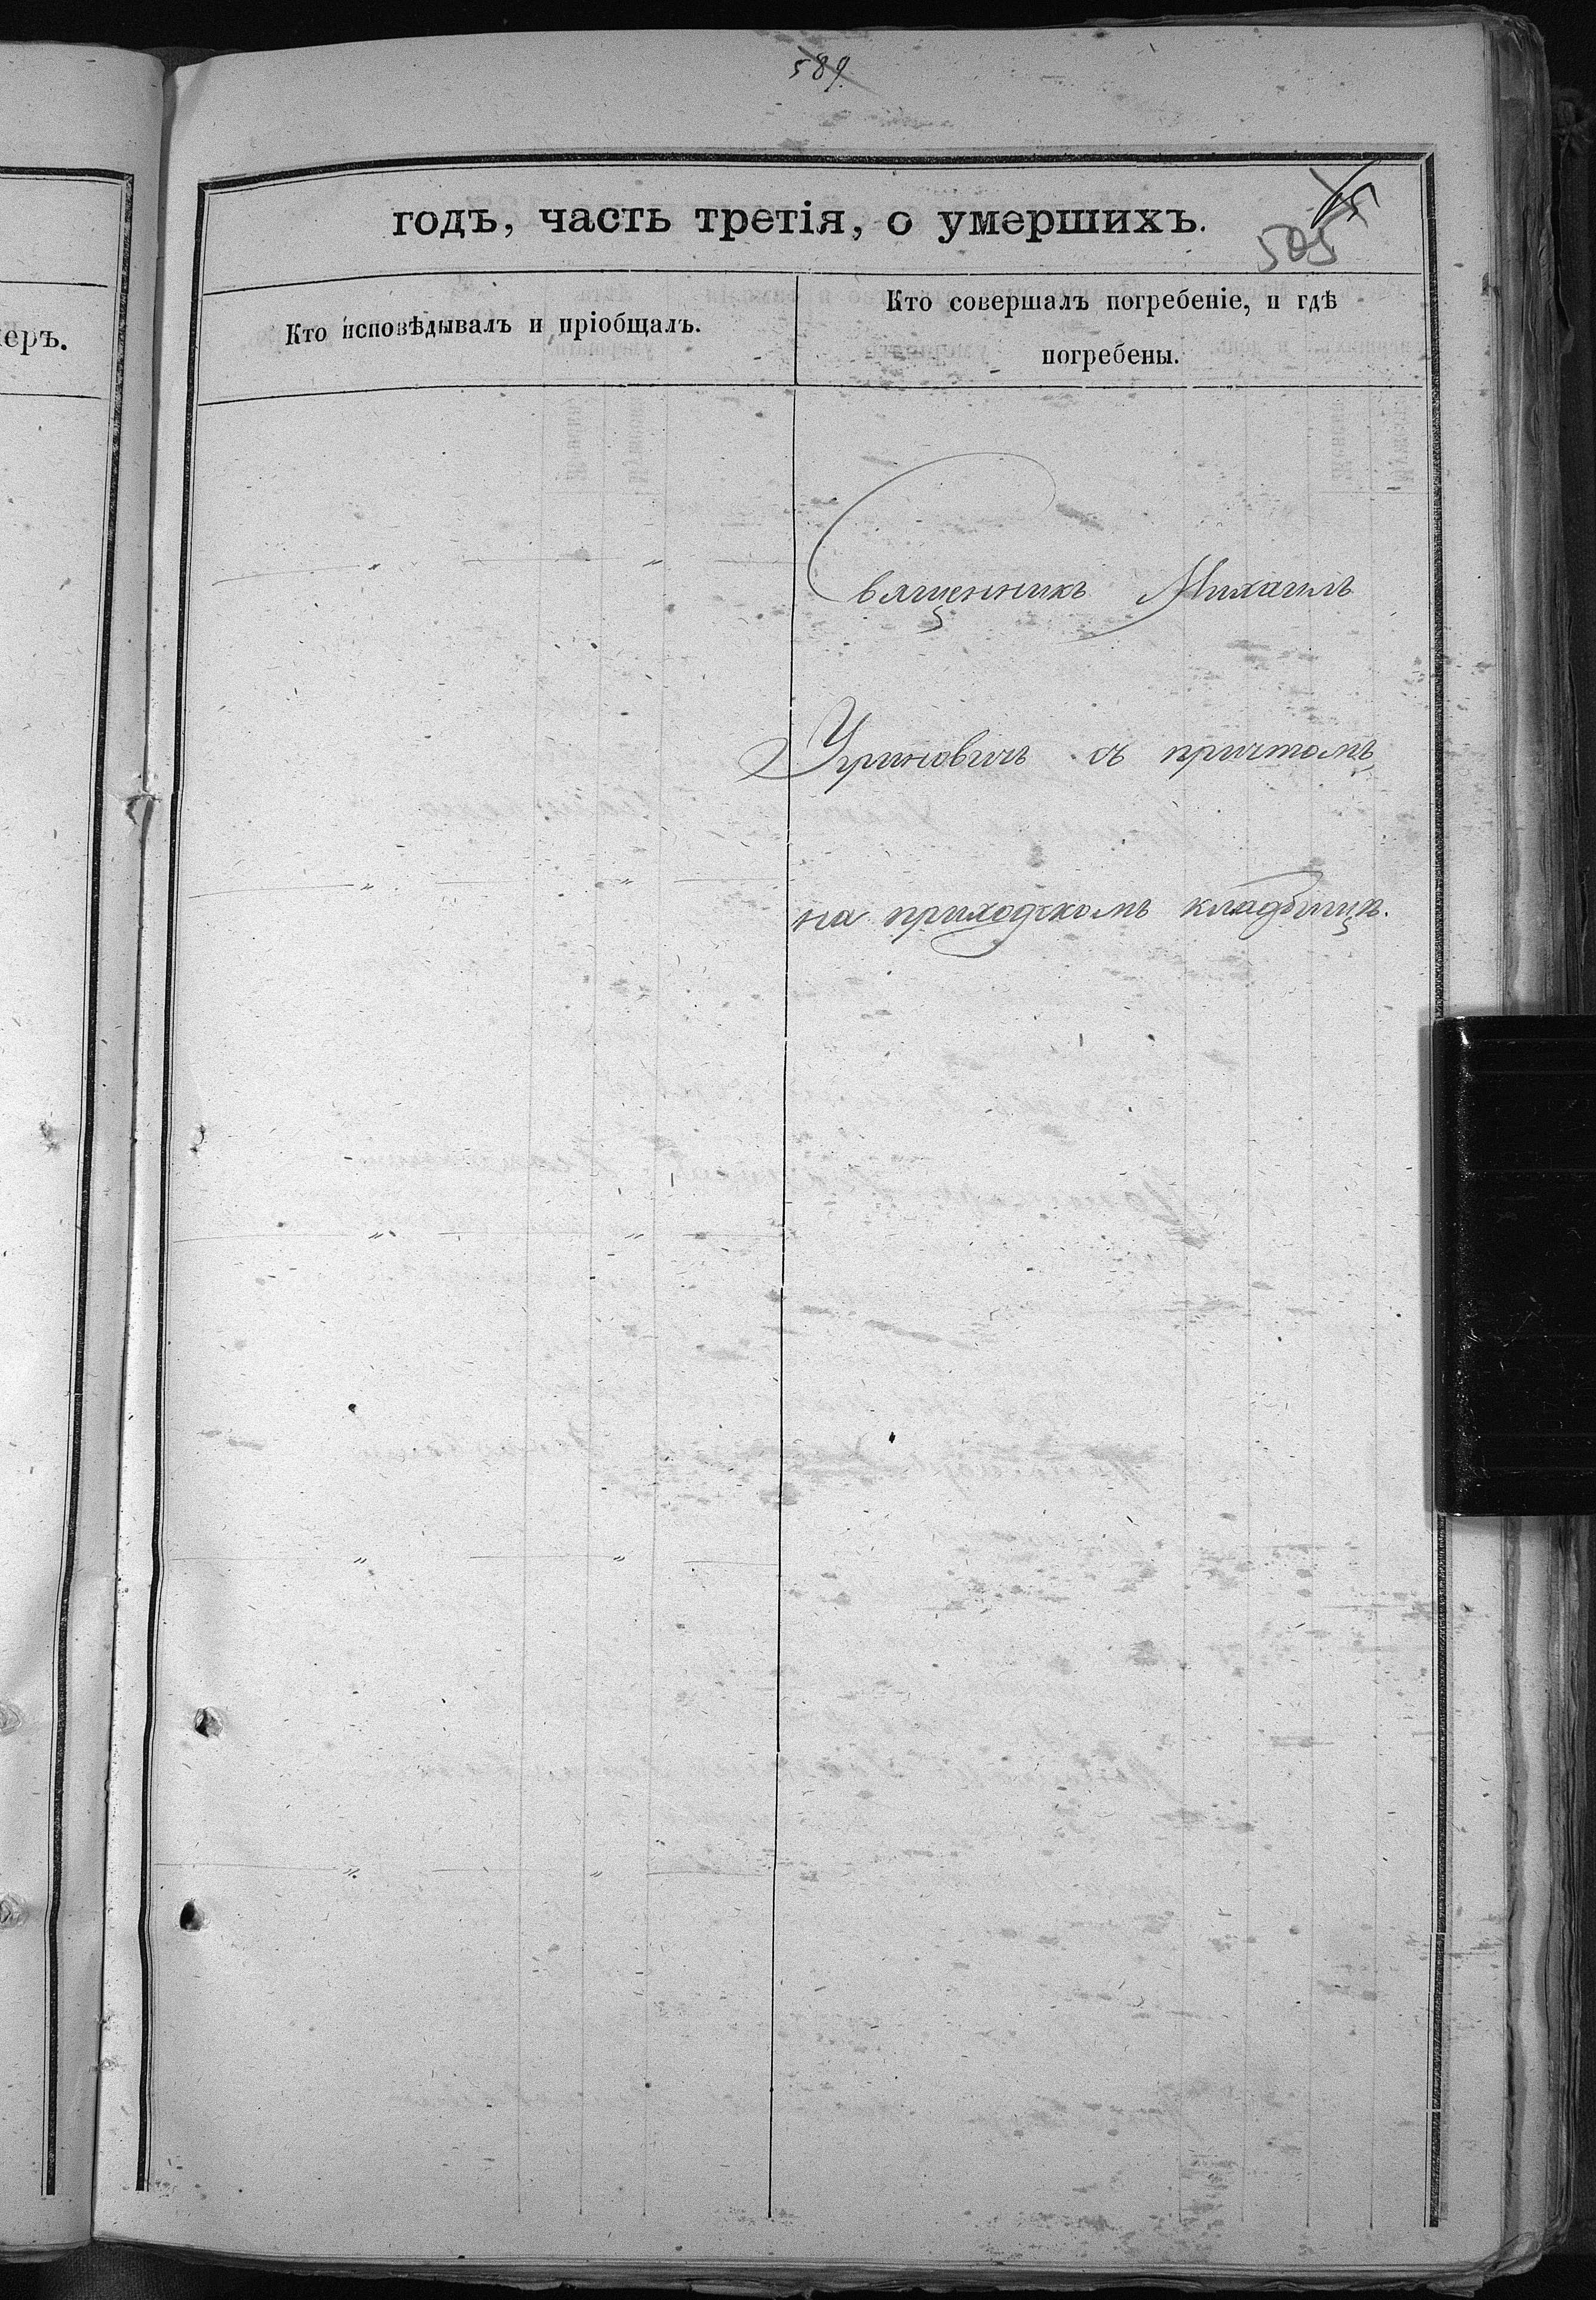 589.
годъ, часть третія, о умершихъ.
505
керъ.
Кто исповѣдывалъ и пріобщалъ.
Кто совершалъ погребеніе, и гдѣ
погребены.
Священникъ Михаилъ
Уриновичъ съ причтомъ,
на приходскомъ кладбищѣ.